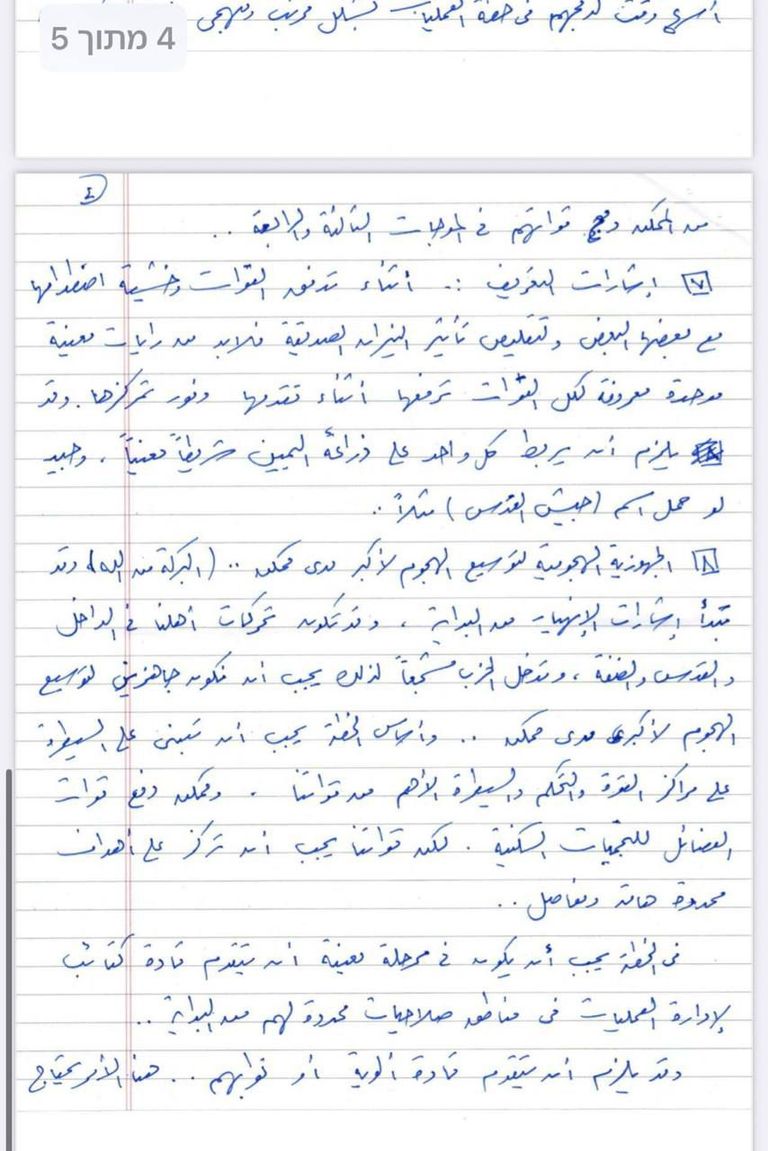 أسرع وقت لدمجهم في خطة العمليات بشكل مرتب ومنهجي
4 מתוך 5
٤
من الممكن دمج قواتهم في الموجات الثالثة والرابعة ..
٧ إشارات التعريف :. أثناء تدفق القوات وخشية اصطدامها
مع بعضها البعض ولتقليص تأثير النيران الصديقة فلابد من رايات معينة
موحدة معروفة لكل القوات ترفعها أثناء تقدمها وفور تمركزها . وقد
يلزم أن يربط كل واحد على ذراعه اليمين شريطاً معيناً ، وحبيذ
لو حمل اسم (جيش القدس) مثلاً ..
٨ الجهوزية الهجومية لتوسيع الهجوم لأكبر مدى ممكن .. (البركة من الله) وقد
تبدأ إشارات الإنهيار من البداية ، وقد تكون تحركات أهلنا في الداخل
والقدس والضفة ، وتدخل الحزب مشجعاً لذلك يجب أن نكون جاهزين لتوسيع
الهجوم لأكبر مدى ممكن .. وأساس الخطة يجب أن تبنى على السيطرة
على مراكز القوة والتحكم والسيطرة الأهم من قواتنا . وممكن دفع قوات
الفصائل للتجمعات السكنية . لكن قواتنا يجب أن تركز على أهداف
محددة هامة ومفاصل ..
في الخطة يجب أن يكون في مرحلة معينة أن يتقدم قادة كتائب
لإدارة العمليات في مناطق صلاحيات محددة لهم من البداية ..
وقد يلزم أن يتقدم قادة ألوية أو نوابهم .. هذا الأمر يحتاج